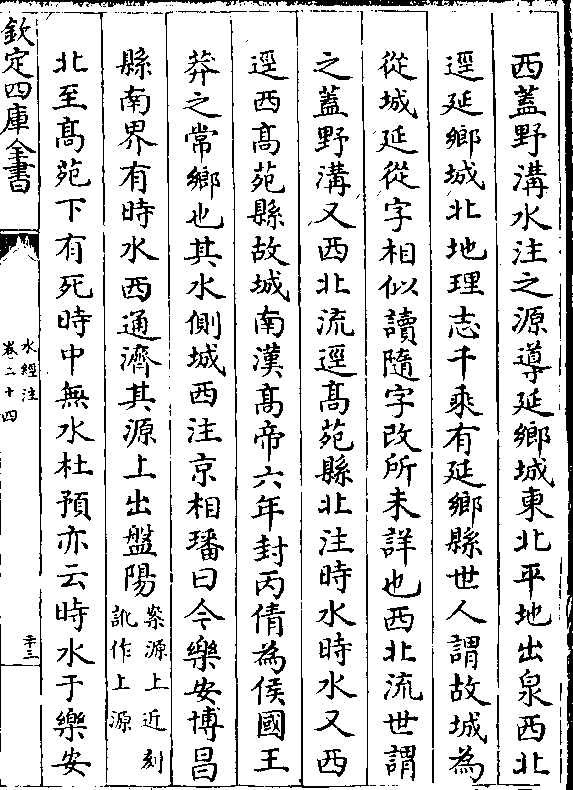 西蓋野溝水注之源導延鄉城東北平地出泉西北
逕延鄉城北地理志千乘有延鄉縣世人謂故城為
從城延從字相似讀隨字改所未詳也西北流世謂
之蓋野溝又西北流逕髙苑縣北注時水時水又西
逕西髙苑縣故城南漢髙帝六年封丙倩為侯國王
莽之常鄉也其水側城西注京相璠曰今樂安博昌
縣南界有時水西通濟其源上出盤陽案源上近刻訛作上源
北至髙苑下有死時中無水杜預亦云時水于樂安
欽定四庫全書
水經注
卷二十四
二十三